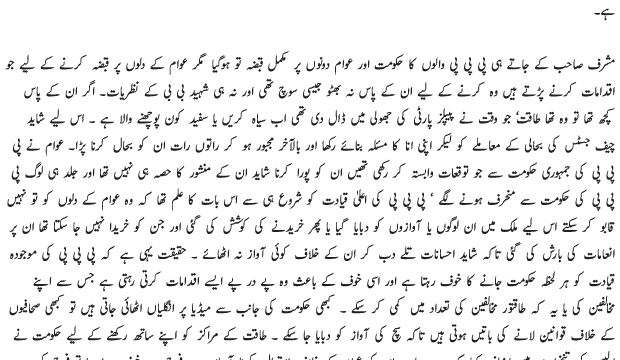 ہے۔
مشرف صاحب کے جاتے ہی پی پی پی والوں کا حکومت اور عوام دونوں پر مکمل قبضہ تو ہوگیا مگر عوام کے دلوں پر قبضہ کرنے کے لیے جو
اقدامات کرنے پڑتے ہیں وہ کرنے کے لیے ان کے پاس نہ بھٹو جیسی سوچ تھی اور نہ ہی شہید بی بی کے نظریات۔ اگر ان کے پاس
کچھ تھا تو وہ تھا طاقت‘ جو وقت نے پیپلز پارٹی کی جھولی میں ڈال دی تھی اب سیاہ کریں یا سفید کون پوچھنے والا ہے ۔ اس لیے شاید
چیف جسٹس کی بحالی کے معاملے کو لیکر اپنی انا کا مسئلہ بنائے رکھا اور بالآخر مجبور ہو کر راتوں رات ان کو بحال کرنا پڑا۔ عوام نے پی
پی پی کی جمہوری حکومت سے جو توقعات وابستہ کر رکھی تھیں ان کو پورا کرنا شاید ان کے منشور کا حصہ ہی نہیں تھا اور جلد ہی لوگ پی
پی پی کی حکومت سے منحرف ہونے لگے ‘ پی پی پی کی اعلیٰ قیادت کو شروع ہی سے اس بات کا علم تھا کہ وہ عوام کے دلوں کو تو نہیں
قابو کر سکتے اس لیے ملک میں ان لوگوں یا آوازوں کو دبایا گیا یا پھر خریدنے کی کوشش کی گئی اور جن کو خریدا نہیں جا سکتا تھا ان پر
انعامات کی بارش کی گئی تاکہ شاید احسانات تلے دب کر ان کے خلاف کوئی آواز نہ اٹھائے ۔ حقیقت یہی ہے کہ پی پی پی کی موجودہ
قیادت کو ہر لحظہ حکومت جانے کا خوف رہتا ہے اور اسی خوف کے باعث وہ پے در پے ایسے اقدامات کرتی رہتی ہے جس سے اپنے
مخالفین کی یا یہ کہ طاقتور مخالفین کی تعداد میں کمی کر سکے ۔ کبھی حکومت کی جانب سے میڈیا پر انگلیاں اٹھائی جاتی ہیں تو کبھی صحافیوں
کے خلاف قوانین لانے کی باتیں ہوتی ہیں تاکہ سچ کی آواز کو دبایا جا سکے ۔ طاقت کے مراکز کو اپنے ساتھ رکھنے کے لیے حکومت نے